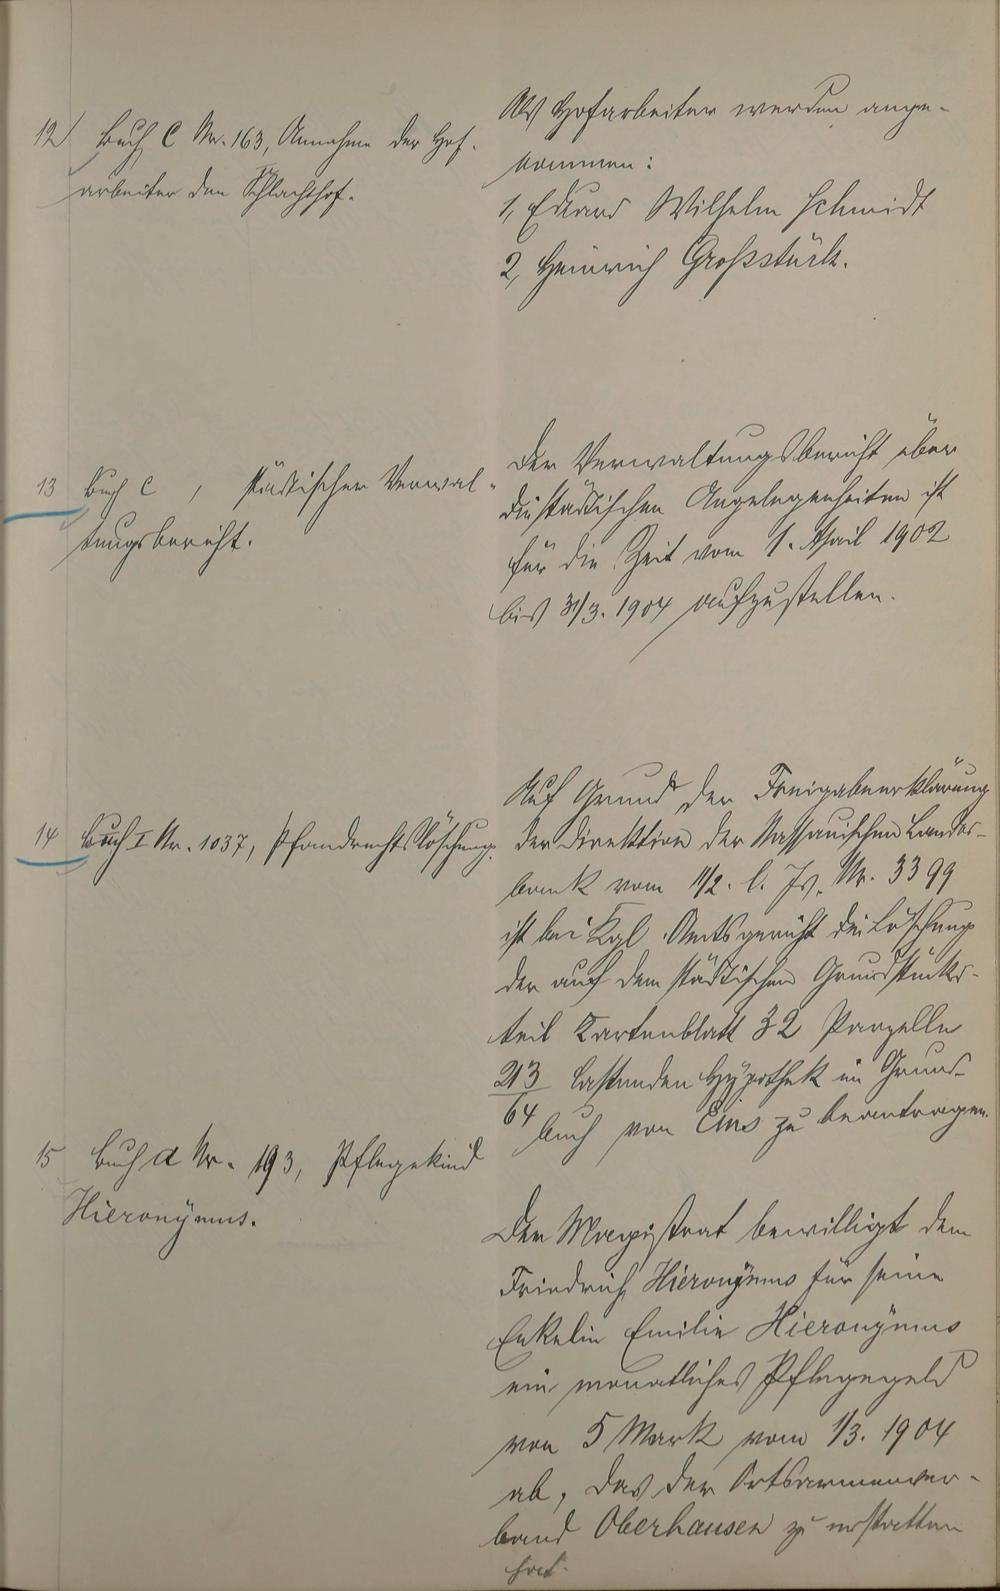 12) Buch C Nr. 163, Annahme der Hof-
arbeiter den Schlachthof.
Als Hofarbeiter werden ange-
nommen:
1, Eduard Wilhelm Schmidt
2, Heinrich Großstück.
13 Buch C , städtischer Verwal-
tungsbericht.
Der Verwaltungsbericht über
die städtischen Angelegenheiten ist
für die Zeit vom 1. April 1902
bis 31/3. 1904 aufzustellen.
14 Buch I Nr. 1037, Pfandrechtslöschung.
Auf Grund der Freigabeerklärung
der Direktion der Nassauischen Landes-
bank vom 11/2. l. Js. Nr. 3399
ist bei Kgl. Amtsgericht die Löschung
der auf dem städtischen Grundstücks-
teil Kartenblatt 32 Parzelle
213/64 lastenden Hypothek im Grund-
buch von Ems zu beantragen.
15 Buch d Nr. 193, Pflegekind
Hieronÿmus.
Der Magistrat bewilligt dem
Friedrich Hieronÿmus für seine
Enkelin Emilie Hieronÿmus
ein monatliches Pflegegeld
von 5 Mark vom 1/3. 1904
ab, das der Ortsarmenver-
band Oberhausen zu erstatten
hat.